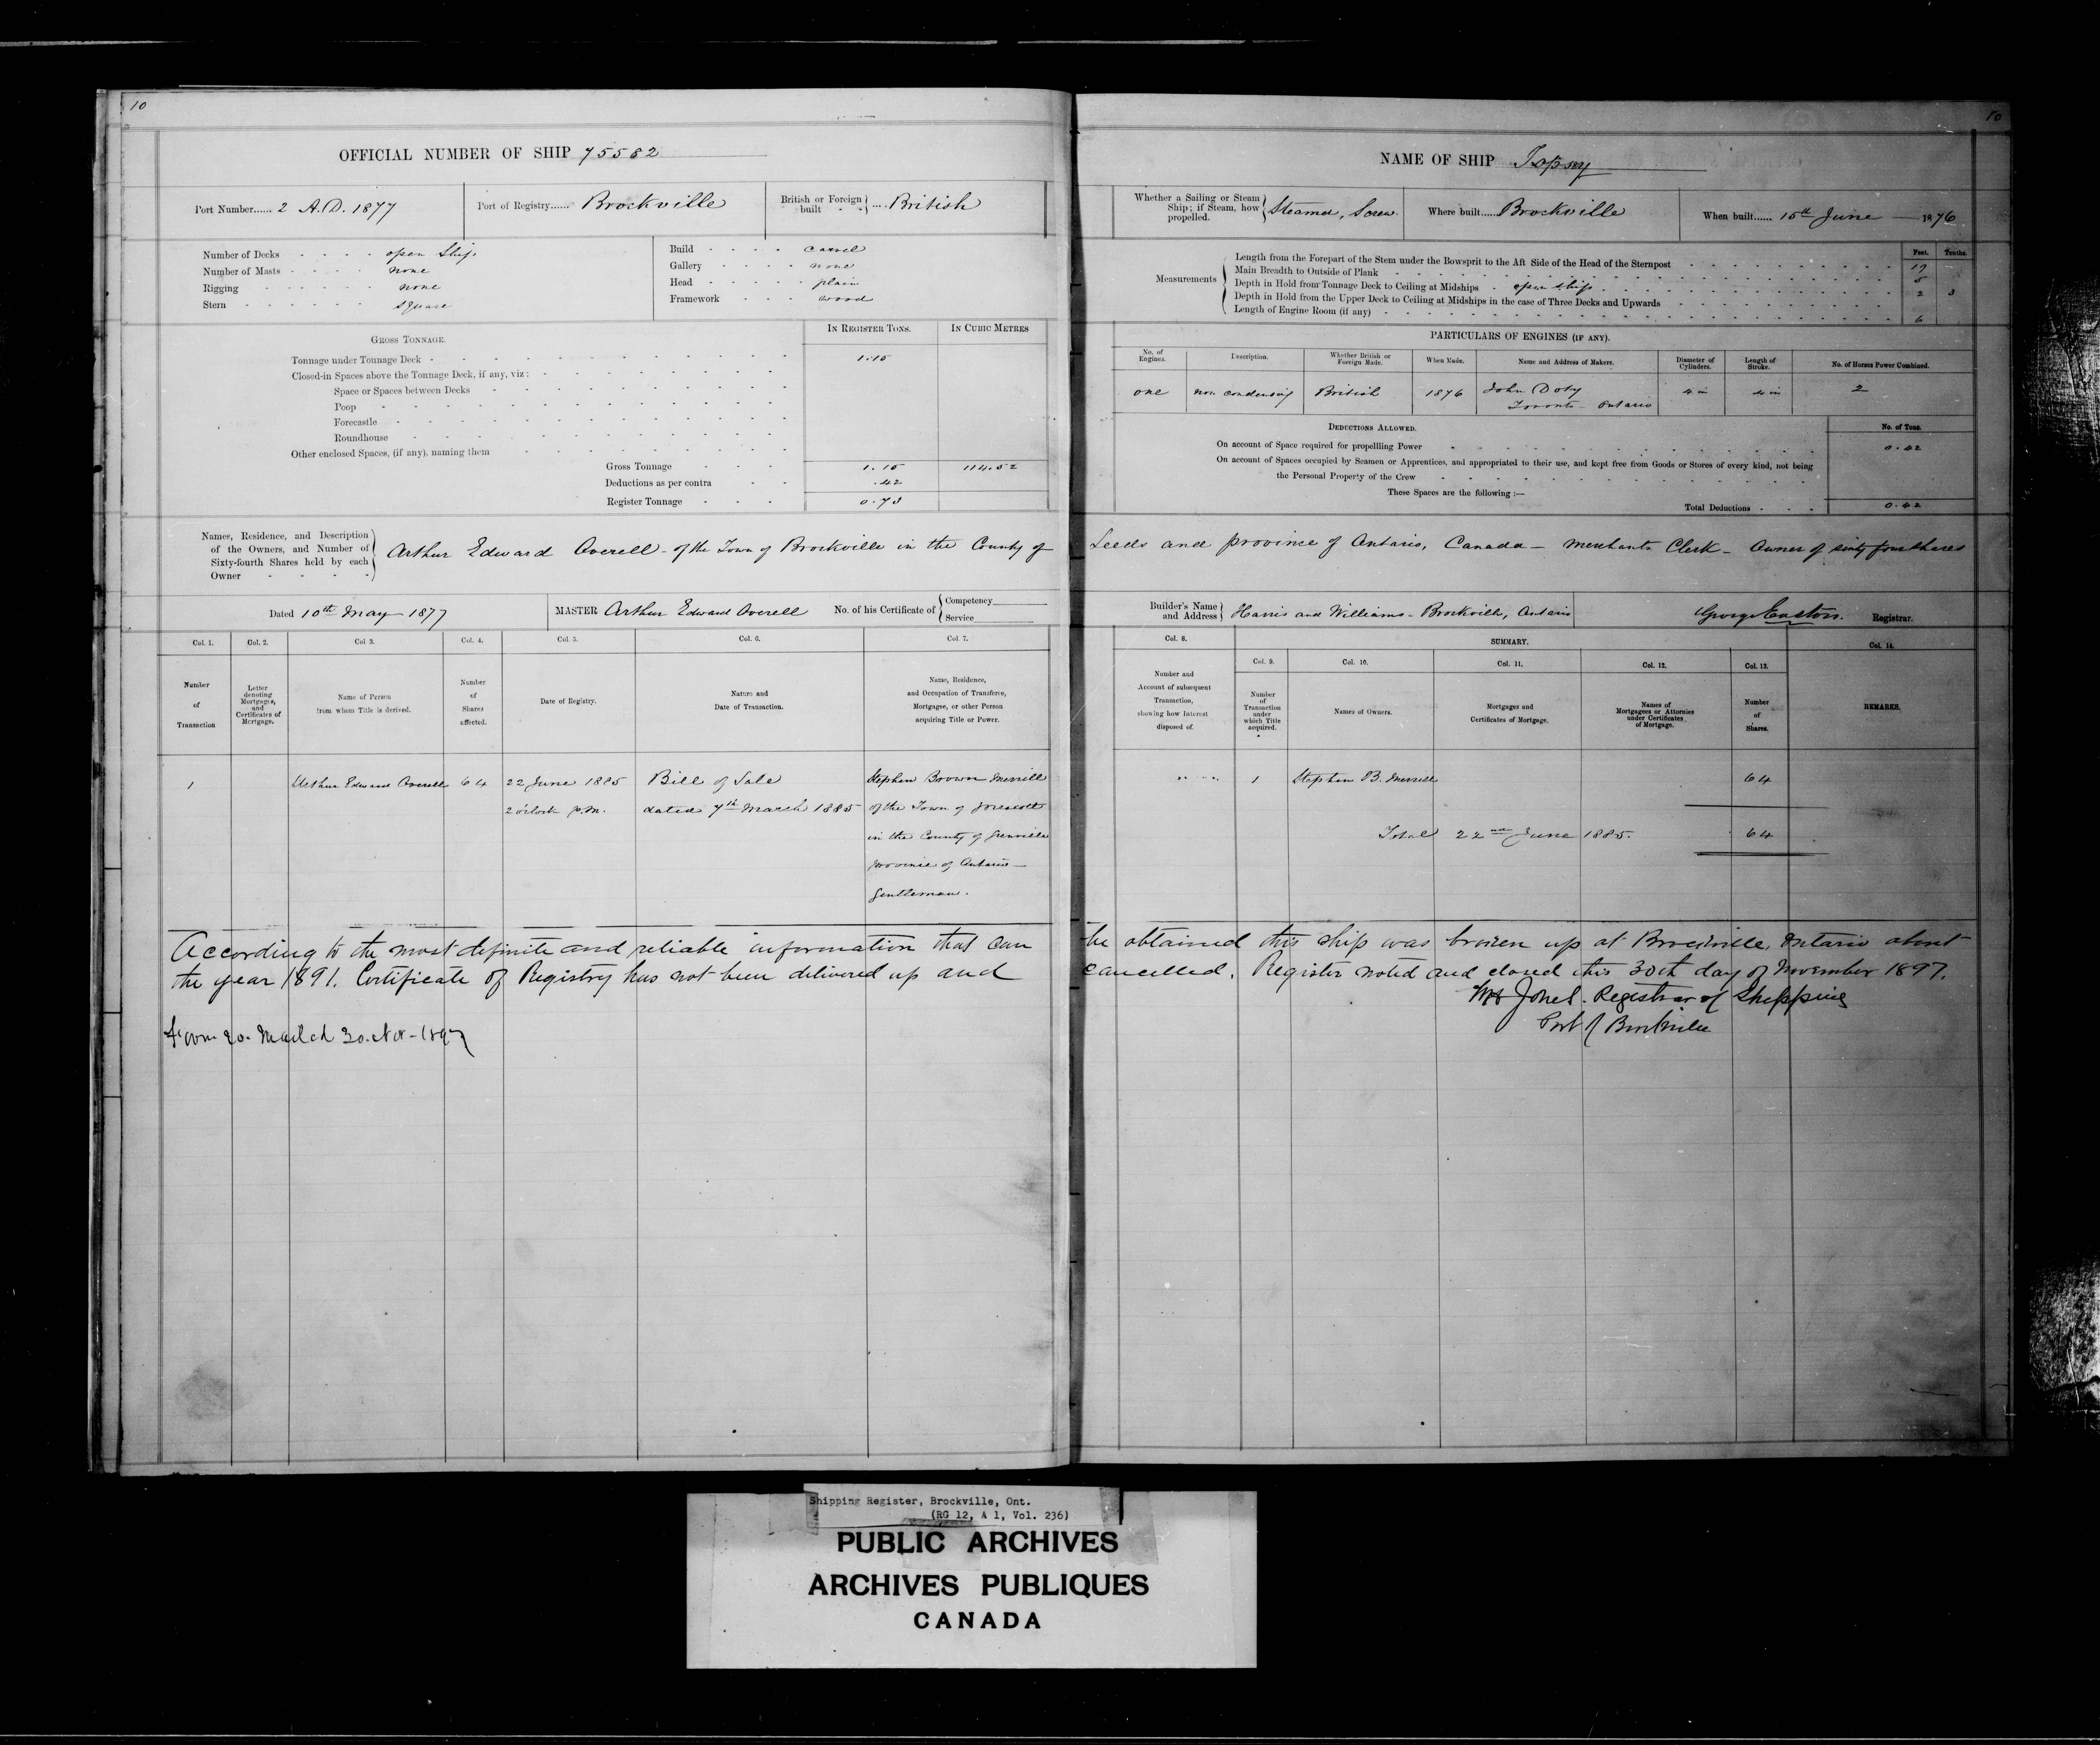 10
OFFICIAL NUMBER OF SHIP 75582
Port Number...... 2 A.D. 1877
Port of Registry...... Brockville
British or Foreign built .... British
Number of Decks - - - - open Ship
Number of Masts - - - - none
Rigging - - - - none
Stern - - - - square
Build - - - - carvel
Gallery - - - - none
Head - - - - plain
Framework - - - wood
GROSS TONNAGE.
IN REGISTER TONS.
IN CUBIC METRES
Tonnage under Tonnage Deck - 1.15
Closed-in Spaces above the Tonnage Deck, if any, viz:
Space or Spaces between Decks
Poop
Forecastle
Roundhouse
Other enclosed Spaces, (if any), naming them
Gross Tonnage 1.15 114.52
Deductions as per contra .42
Register Tonnage 0.73
Names, Residence, and Description
of the Owners, and Number of
Sixty-fourth Shares held by each
Owner
Arthur Edward Averell - of the Town of Brockville in the County of
Dated 10th May 1877
MASTER Arthur Edward Averell
No. of his Certificate of
Competency
Service
Col. 1. Col. 2. Col 3. Col. 4. Col. 5. Col. 6. Col. 7.
Number
of
Transaction
Letter
denoting
Mortgages,
and
Certificates of
Mortgage.
Name of Person
from whom Title is derived.
Number
of
Shares
affected.
Date of Registry.
Nature and
Date of Transaction.
Name, Residence,
and Occupation of Transferee,
Mortgagee, or other Person
acquiring Title or Power.
1 Arthur Edward Averell 64 22 June 1885 Bill of Sale Stephen Brown Merrill
2 o'clock p.m. dated 7th March 1885 of the Town of Prescott
in the County of Grenville
Province of Ontario—
Gentleman.
According to the most definite and reliable information that can
the year 1891. Certificate of Registry has not been delivered up and
30. Nov - 1897
10
NAME OF SHIP Topsey
Whether a Sailing or Steam
Ship; if Steam, how
propelled.
Steamer, Screw.
Where built..... Brockville
When built...... 15th June 1876
Measurements
Feet. Tenths.
Length from the Forepart of the Stem under the Bowsprit to the Aft Side of the Head of the Sternpost 17
Main Breadth to Outside of Plank 5
Depth in Hold from Tonnage Deck to Ceiling at Midships - open ship 2 3
Depth in Hold from the Upper Deck to Ceiling at Midships in the case of Three Decks and Upwards
Length of Engine Room (if any) 6
PARTICULARS OF ENGINES (IF ANY).
No. of
Engines.
Description.
Whether British or
Foreign Made.
When Made.
Name and Address of Makers.
Diameter of
Cylinders.
Length of
Stroke.
No. of Horses Power Combined.
one non condensing British 1876 John Doty 4 in 4 in 2
Toronto - Ontario
DEDUCTIONS ALLOWED.
No. of Tons.
On account of Space required for propellling Power 0.42
On account of Spaces occupied by Seamen or Apprentices, and appropriated to their use, and kept free from Goods or Stores of every kind, not being
the Personal Property of the Crew
These Spaces are the following :—
Total Deductions - - - 0.42
Leeds and province of Ontario, Canada - Merchants Clerk - Owner of sixty four shares
Builder's Name
and Address
Harris and Williams - Brockville, Ontario
George Easton. Registrar.
Col. 8.
SUMMARY.
Col. 14.
Col. 9. Col. 10. Col. 11. Col. 12. Col. 13.
Number and
Account of subsequent
Transaction,
showing how Interest
disposed of.
Number
of
Transaction
under
which Title
acquired.
Names of Owners.
Mortgages and
Certificates of Mortgage.
Names of
Mortgagees or Attornies
under Certificates
of Mortgage.
Number
of
Shares.
REMARKS.
1 Stephen B. Merrill 64
Total 22nd June 1885. 64
be obtained this ship was broken up at Brockville, Ontario about
cancelled. Register noted and closed this 30th day of November 1897.
WH Jones. Registrar of Shipping
Port of Brockville
Shipping Register, Brockville, Ont.
(RG 12, A 1, Vol. 236)
PUBLIC ARCHIVES
ARCHIVES PUBLIQUES
CANADA